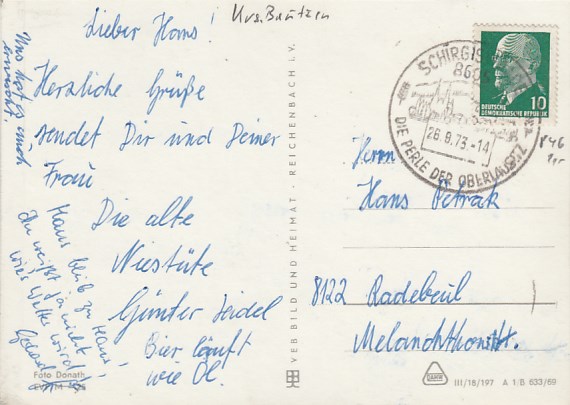 Krs. Bautzen
Lieber Hans!
Herzliche Grüße
sendet Dir und Deiner
Frau
Die alte
Niestüte
Günter Seidel
Bier läuft
wie Öl.
Uns hat es auch
erwischt!
Hans bleib zu Haus,
Du weißt ja nicht
wies Wetter wird
Foto Donath
VEB BILD UND HEIMAT · REICHENBACH I. V.
SCHIRGIS
860
26.9.73-14
DIE PERLE DER OBERLAUSITZ
DEUTSCHE
DEMOKRATISCHE REPUBLIK
10
Herrn
Hans Petrak
8122 Radebeul
Melanchthonstr.
III/18/197 A 1/B 633/69